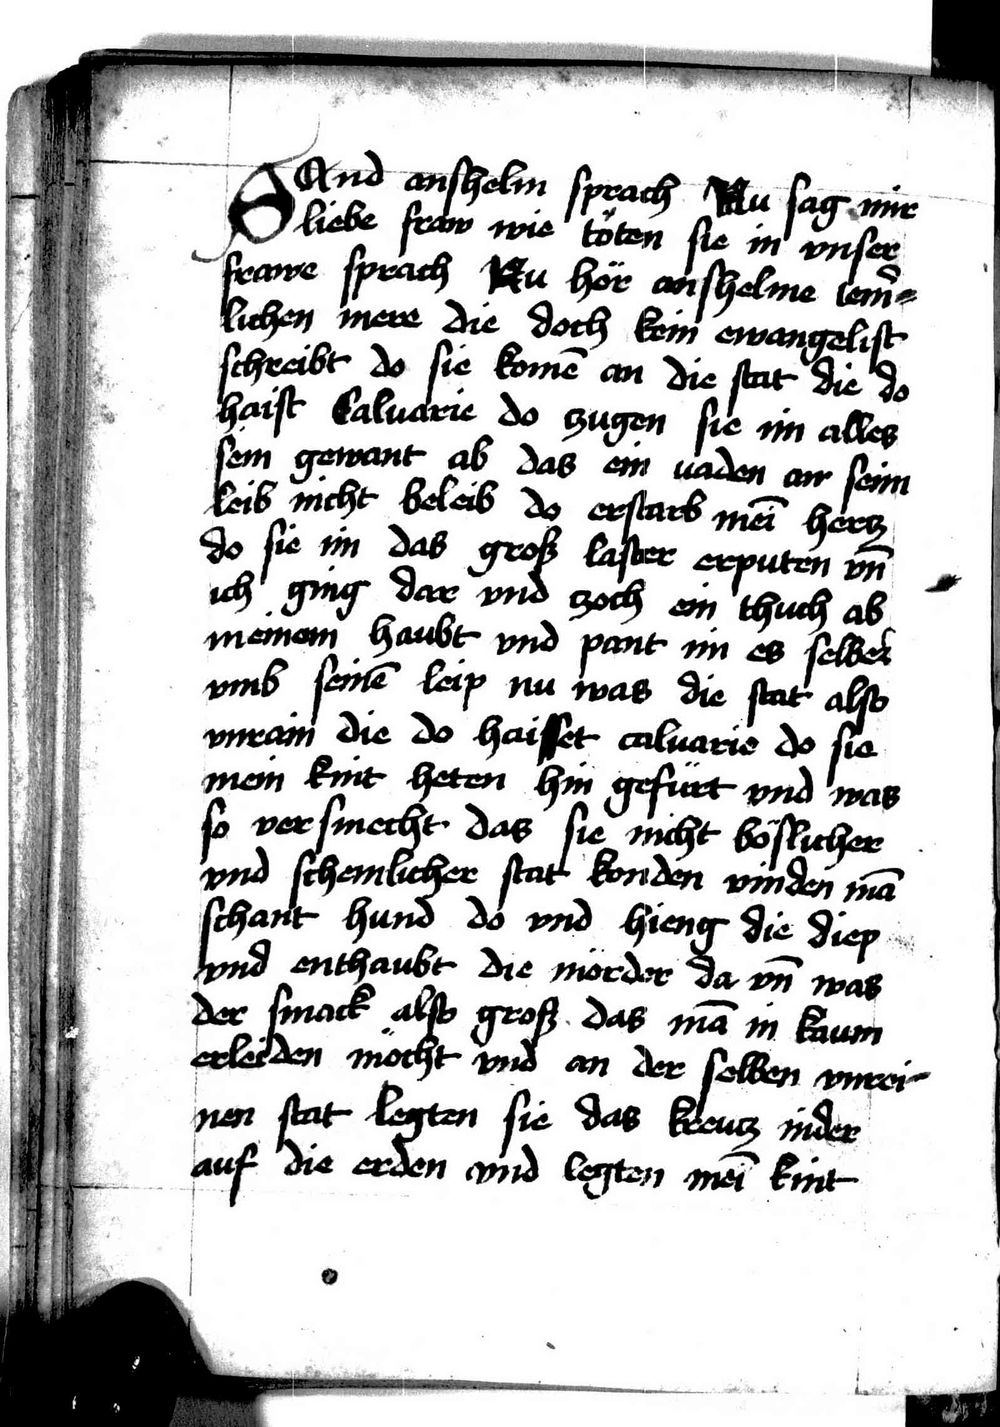 SAnd anshelm sprach Nu sag mir
liebe fraw wie töten sie in vnser
frawe sprach Nu hör anshelme iem̄-
lichen mere die doch kein ewangelist
schreibt do sie komē an die stat die do
haist Caluarie do zugen sie im alles
sein gewant ab das ein vaden an seim
leib nicht beleib do erstarb mēi hertz
do sie im das groß laster erputen vn̄
ich ging dar vnd zoch ein thuch ab
meinem haubt vnd pant im es selber
vmb seinē leip nu was die stat also
vnrain die do haisset caluarie do sie
mein kint heten hin gefürt vnd was
so versmecht das sie nicht böslicher
vnd schemlicher stat konden vinden mā
schant hund do vnd hieng die diep
vnd enthaubt die mörder da vn̄ was
der smack also groß das mā in kaum
erleiden möcht vnd an der selben vnrei-
nen stat legten sie das kreutz nider
auf die erden vnd legten mēi kint